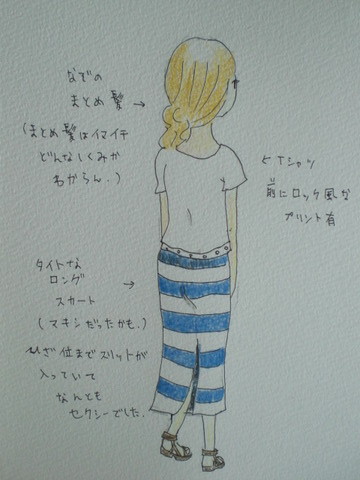 なでの
まとめ髪 →
(まとめ髪はイマイチ
どんなしくみか
わからん.)
← Tシャツ
前にロック風な
プリント有
タイトな
ロング →
スカート
(マキシだったかも.)
ひざ位までスリットが
入っていて
なんとも
セクシーでした.